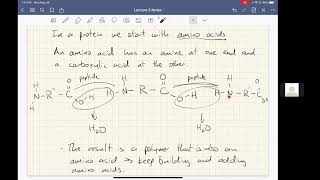 Lecture 5 Notes
In a protein we start with amino acids.
An amino acid has an amine at one end and
a carboxylic acid at the other.
peptide peptide
H H O H H O H H O
H N-R-C O-H H-N-R-C O-H H-N-R-C OH
H₂O H₂O
- The result is a polymer that is also an
amino acid ⇒ keep building and adding
amino acids.